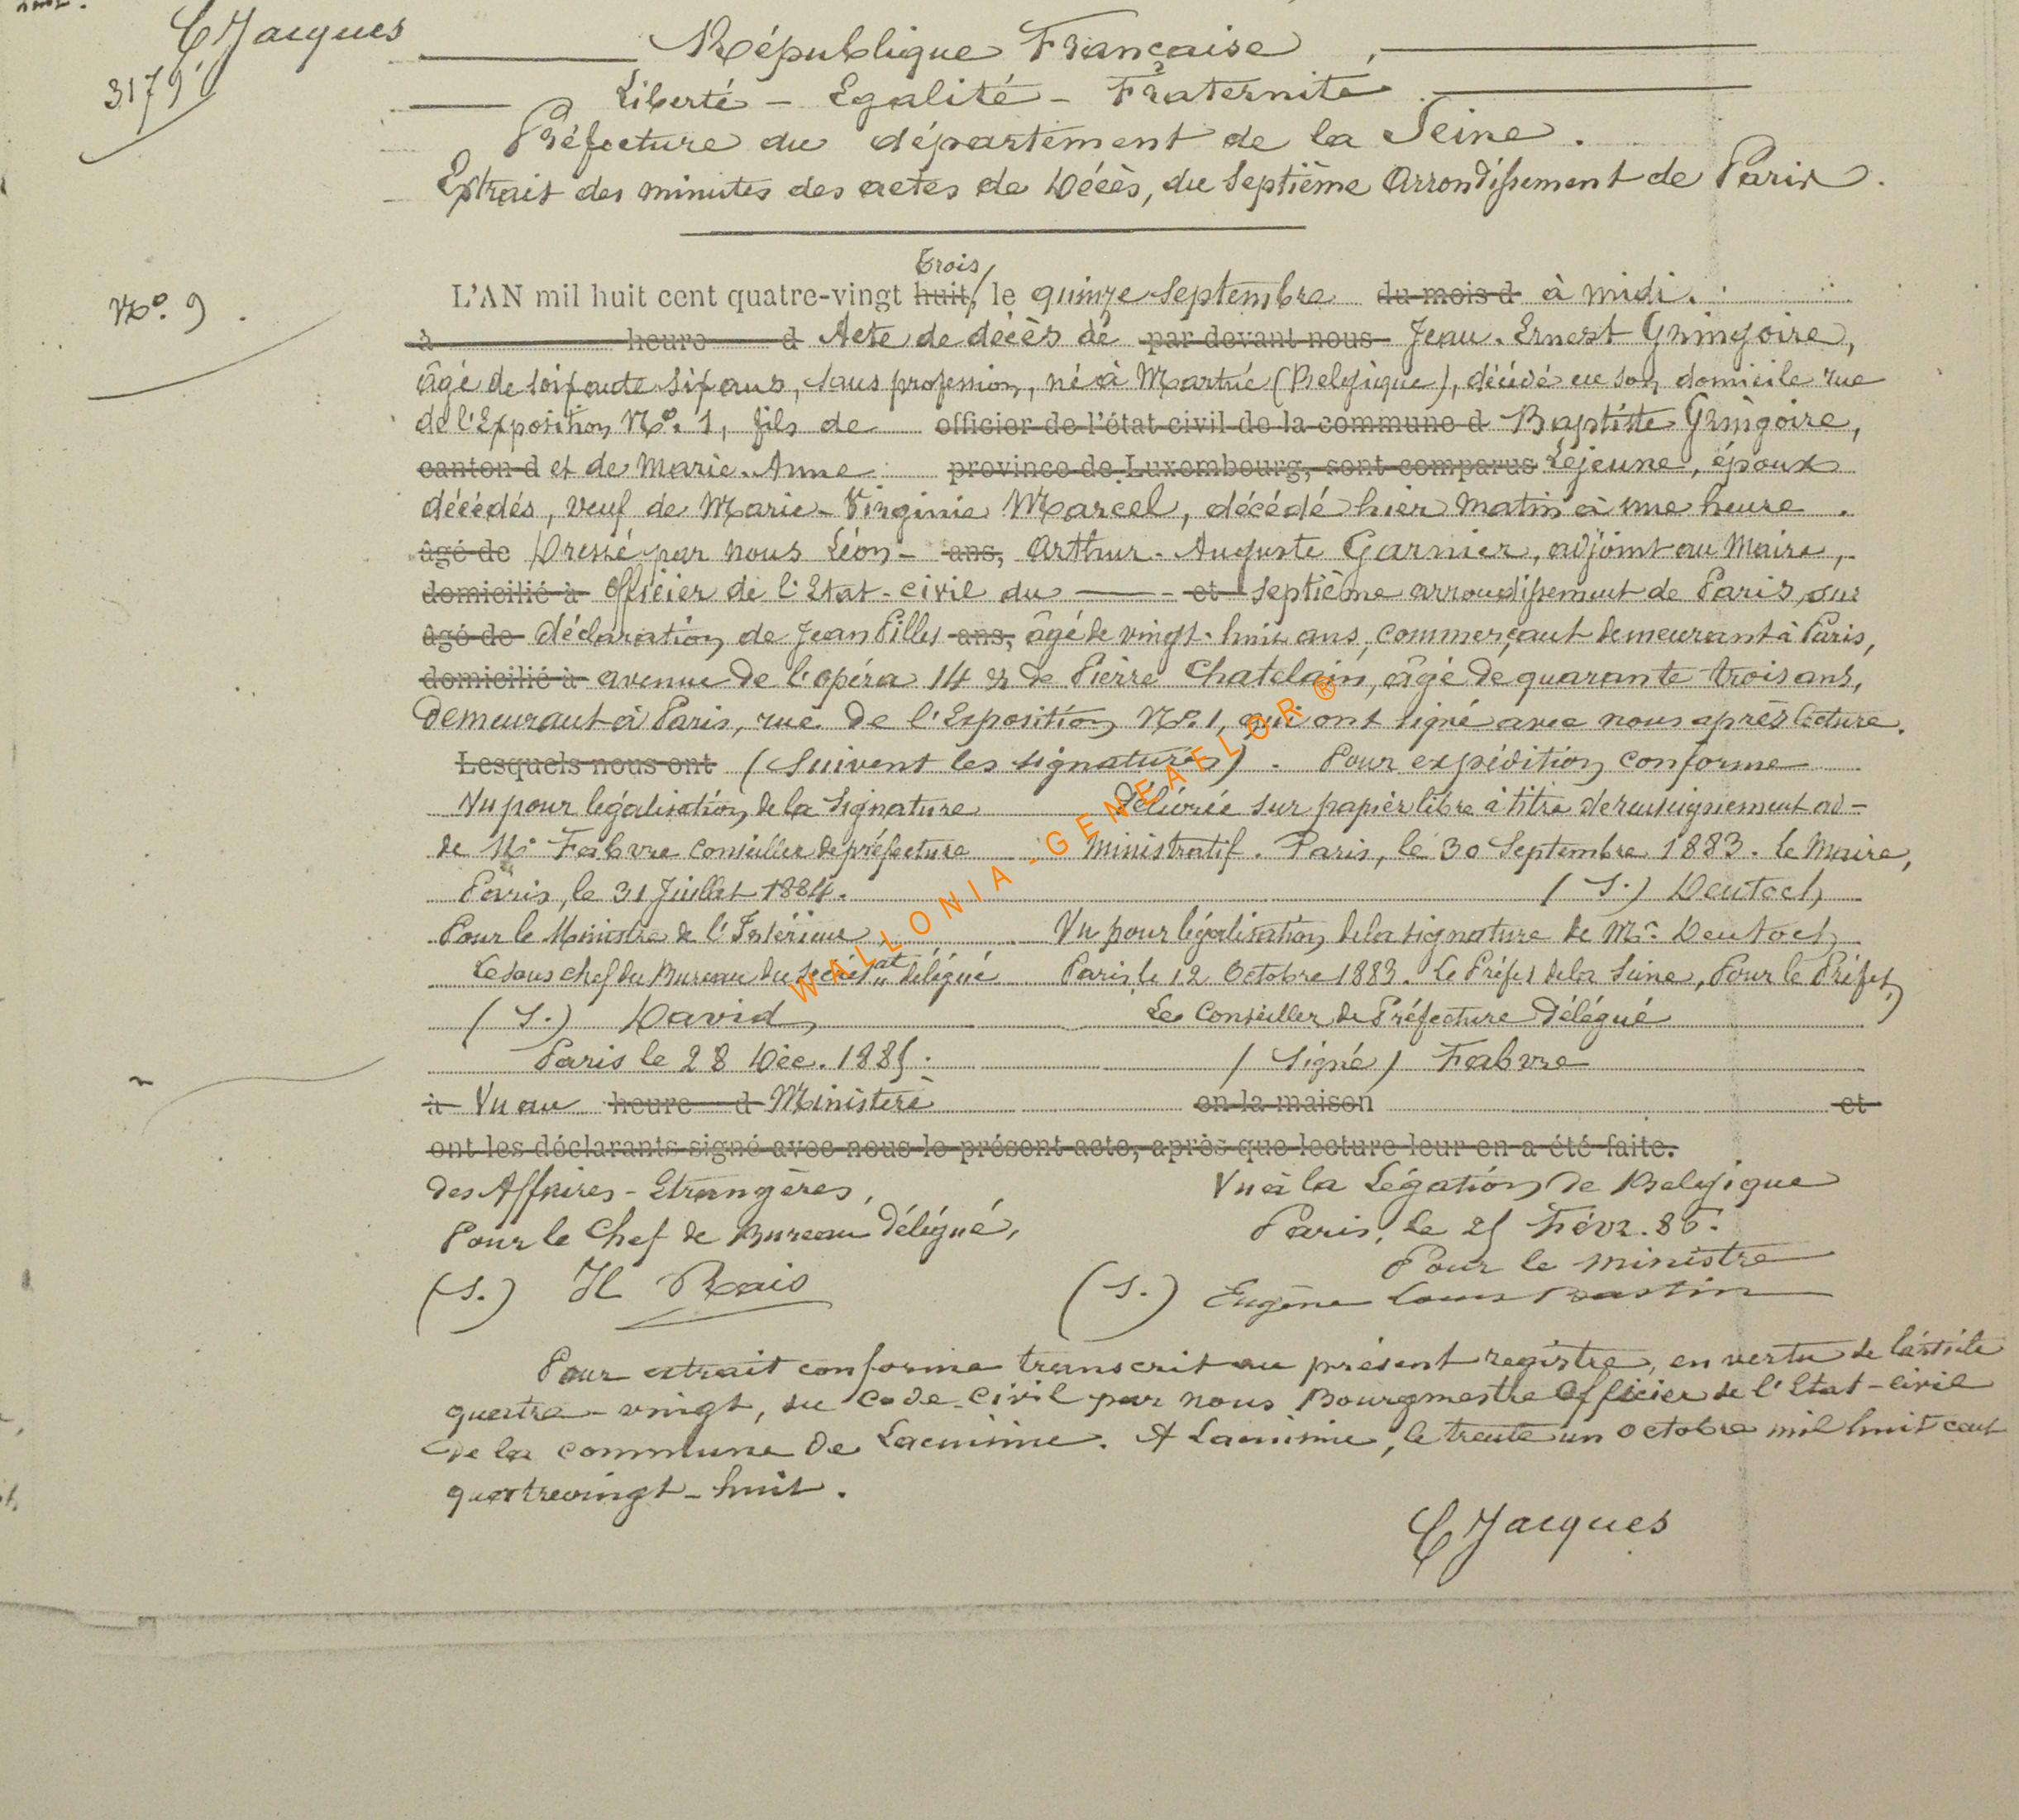 C Jacques
3179
République Française
Liberté – Egalité – Fraternité
Préfecture du département de la Seine.
Extrait des minutes des actes de Décès, du Septième Arrondissement de Paris.
N° 9.
trois
L'AN mil huit cent quatre-vingt huit, le quinze Septembre du mois d à midi.
à heure d Acte de décès de par devant nous Jean-Ernest Gringoire,
âgé de soixante six ans, sans profession, né à (Belgique), décédé en son domicile rue
de l'Exposition N° 1, fils de officier de l'état civil de la commune d Baptiste Gringoire,
canton d et de Marie-Anne province de Luxembourg, sont comparus Lejeune, époux
décédés, veuf de Marie-Virginie Marcel, décédé hier matin à une heure.
âgé de Dressé par nous Léon- ans, Arthur-Auguste Garnier, adjoint au Maire,
domicilié à officier de l'Etat-civil du et septième arrondissement de Paris, sur
âgé de déclaration de Jean Pilley ans, âgé de vingt-huit ans, commerçant demeurant à Paris,
domicilié à avenue de l'opéra 14 & de Pierre Chatelain, âgé de quarante trois ans,
demeurant à Paris, rue de l'Exposition N° 1, qui ont signé avec nous après lecture.
Lesquels nous ont (Suivent les signatures). Pour expédition conforme
Vu pour légalisation de la signature Délivrée sur papier libre à titre de renseignement ad-
de Mr Fabvre Conseiller de préfecture ministratif. Paris, le 30 Septembre 1883. Le Maire,
Paris, le 31 Juillet 1884. (S.) Deutoch
Pour le Ministre de l'Intérieur, Vu pour légalisation de la signature de Mr. Deutoch
Le sous chef du Bureau du Secrétat délégué Paris, le 12 Octobre 1883. Le Préfet de la Seine, Pour le Préfet,
(S.) David, Le Conseiller de Préfecture délégué
Paris le 28 Déc. 1885. (Signé) Fabvre
à Vu au heure d Ministère en la maison et
ont les déclarants signé avec nous le présent acte, après que lecture leur en a été faite.
des Affaires-Etrangères, Vu à la Légation de Belgique
Pour le Chef de Bureau délégué, Paris, le 25 Févr. 86.
Pour le ministre
(S.) H Rais (S.) Eugène Louis Bastin
Pour extrait conforme transcrit au présent registre, en vertu de l'article
quatre-vingt, du Code-Civil par nous Bourgmestre Officier de l'Etat-civil
de la commune de Lacuisine. A Lacuisine, le trente un octobre mil huit cent
quatrevingt-huit.
C Jacques
WALLONIA-GENEAFLOR®